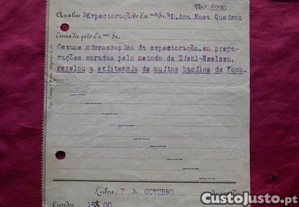 Nº 5230
Análise Expectoração do Ex.mo Sr. D. Ana Rosa Queiroz
Enviada pelo Ex.mo Sr.
Exame microscopico da expectoração, em prepa-
rações coradas pelo metodo de Ziehl-Neelsen,
revelou a existencia de muitos bacilos de Koch.
Lisboa, 7 de OUTUBRO de
15$00
CustoJusto.pt